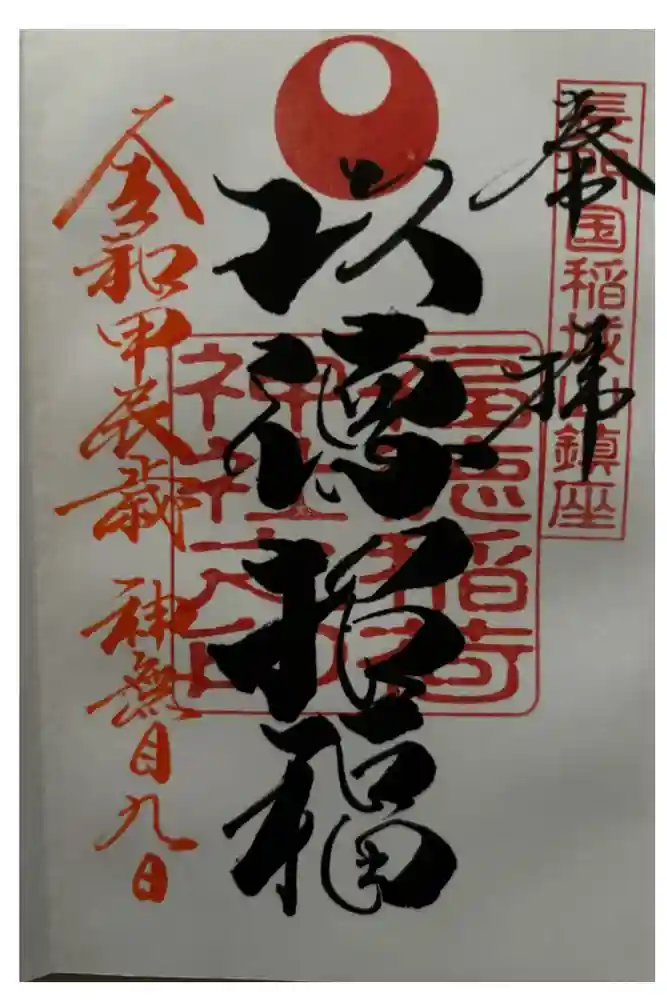 奉拝
長門国稲城山鎮座
以徳招福
稲荷
神社之印
令和甲辰歳 神無月九日